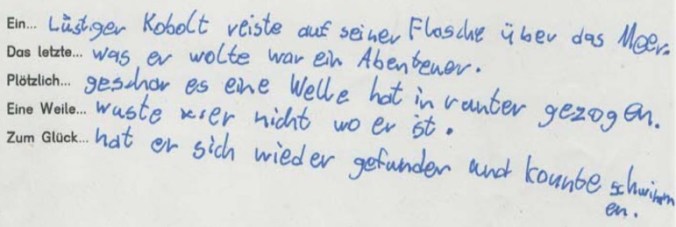 Ein... Lüstiger Kobolt reiste auf seiner Flasche über das Meer.
Das letzte... was er wolte war ein Abenteuer.
Plötzlich... geschar es eine Welle hat in runter gezogen.
Eine Weile... wuste er nicht wo er ist.
Zum Glück... hat er sich wieder gefunden und kounte schwimm
en.